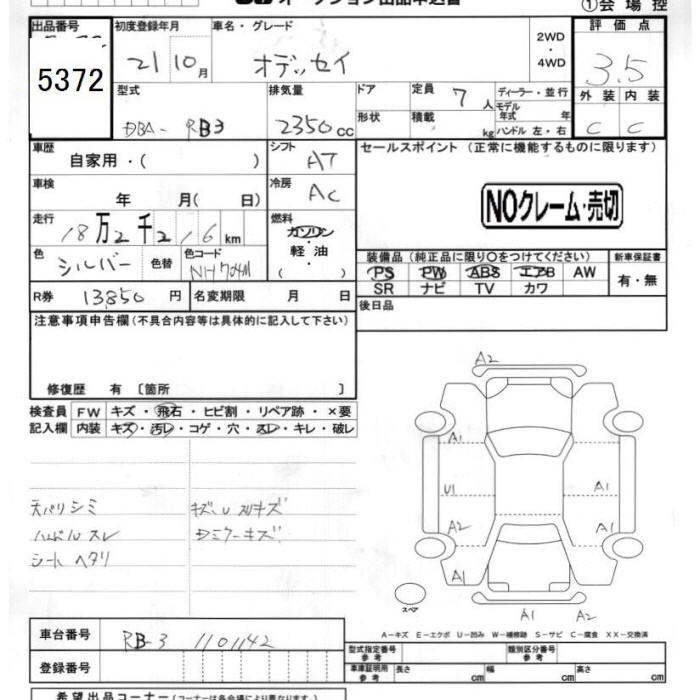 オークション出品申込書
①会場控
出品番号 初度登録年月 車名・グレード 評価点
5372
21 10月 オデッセイ 2WD ・ 4WD 3.5
型式 排気量 ドア 定員 7人 ディーラー・並行 外装 内装
DBA- RB3 2350cc 形状 積載 kg モデル年式 年 ハンドル 左・右 C C
車歴 自家用・( ) シフト AT セールスポイント (正常に機能するものに限ります)
車検 年 月( 日) 冷房 AC
NOクレーム・売切
走行 18万2千216km 燃料 ガソリン・軽油・( )
色 シルバー 色替 色コード NH704M
装備品 (純正品に限り○をつけてください) 新車保証書
PS PW ABS エアB AW 有・無
SR ナビ TV カワ
R券 13850円 名変期限 月 日 後日品
注意事項申告欄(不具合内容等は具体的に記入して下さい)
修復歴 有 〔箇所 〕
検査員 FW キズ・飛石・ヒビ割・リペア跡・×要
記入欄 内装 キズ・汚レ・コゲ・穴・スレ・キレ・破レ
天バリシミ
ハンドルスレ
シートヘタリ
キズ、U スリキズ
A2
A1
U1 A1
A2 A1
A1 A1
スペア
A1 A2
A-キズ E-エクボ U-凹み W-補修跡 S-サビ C-腐食 XX-交換済
車台番号 RB-3 1101142
型式指定番号 参考 類別区分番号 参考
登録番号
車庫証明用 参考 長さ cm 幅 cm 高さ cm
希望出品コーナー(コーナーは各会場により異なります)